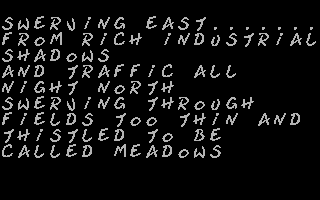 SWERVING EAST.......
FROM RICH INDUSTRIAL
SHADOWS
AND TRAFFIC ALL
NIGHT NORTH
SWERVING THROUGH
FIELDS TOO THIN AND
THISTLED TO BE
CALLED MEADOWS